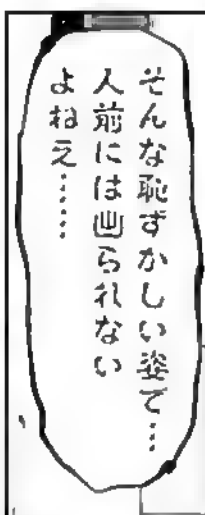 そんな恥ずかしい姿で…
人前には出られない
よねえ……